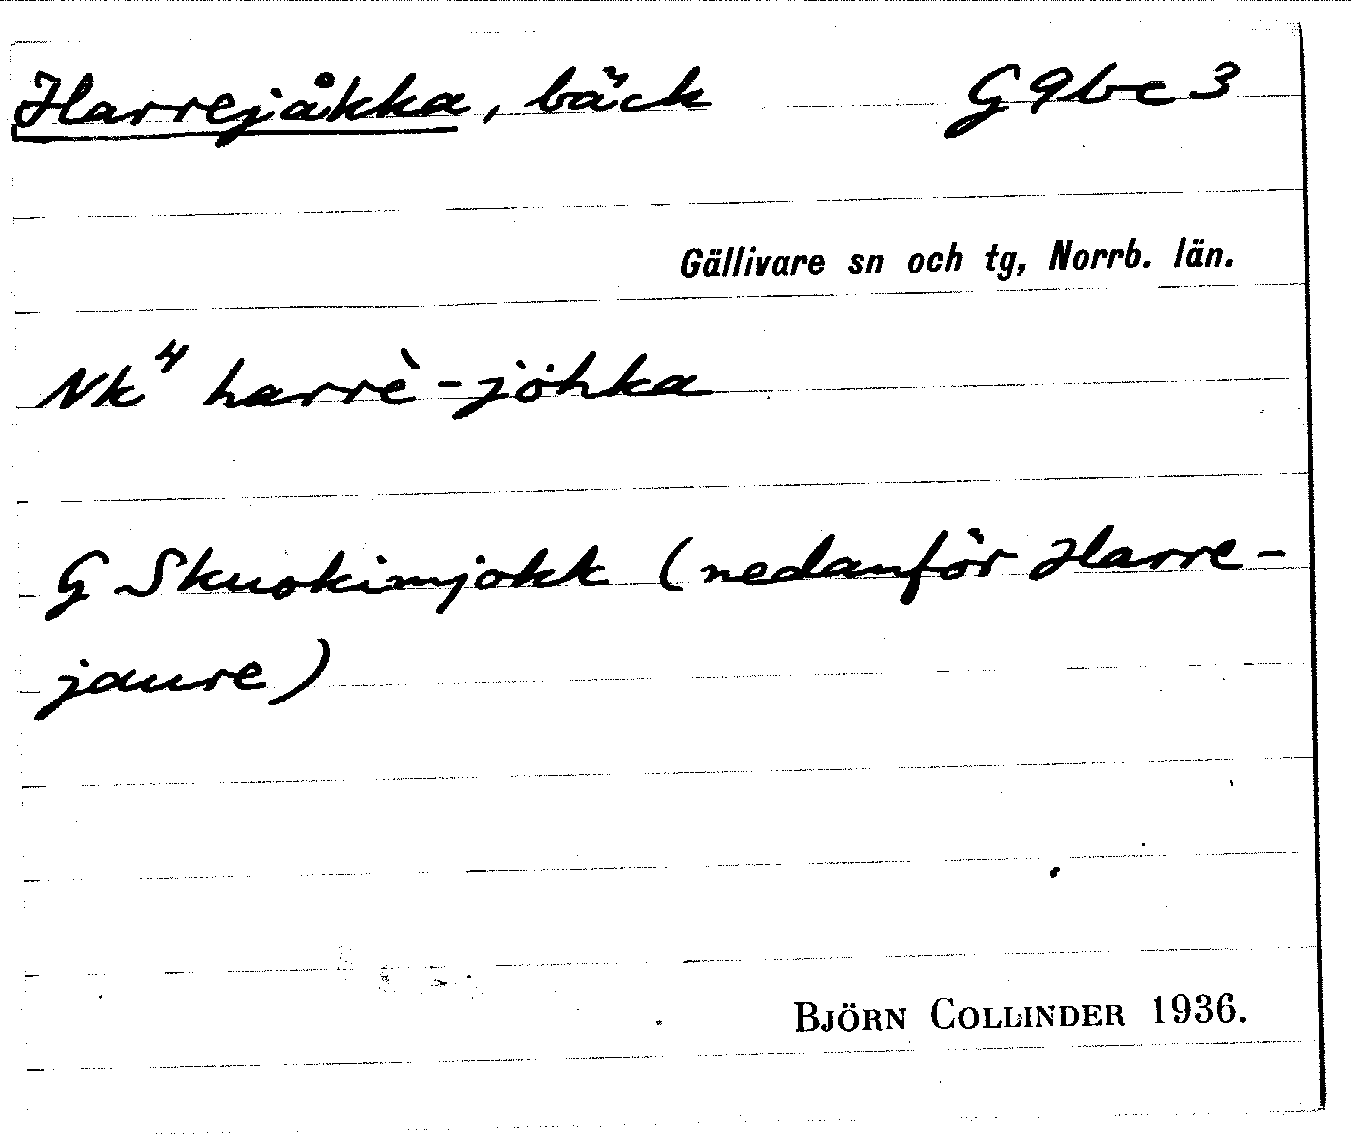 Harrejåkka, bäck G9bc3
Gällivare sn och tg, Norrb. län.
Nk⁴ harrè-jòhka
G Skuokimjokk (nedanför Harre-
jaure)
BJÖRN COLLINDER 1936.